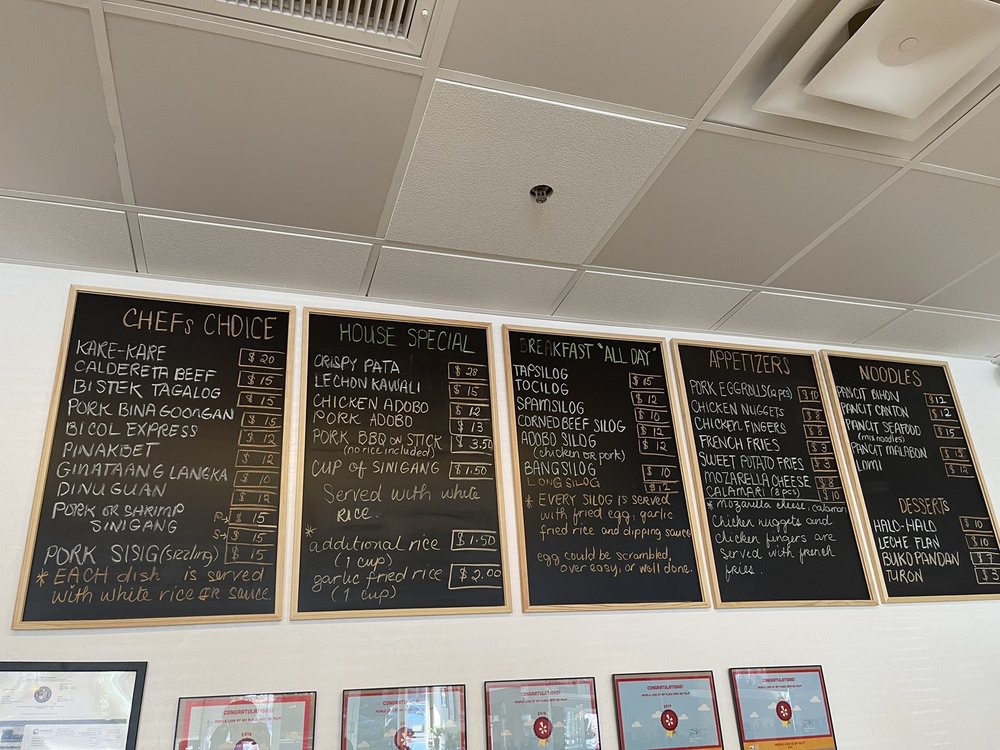 CHEFs CHOICE
KARE-KARE $20
CALDERETA BEEF $15
BISTEK TAGALOG $15
PORK BINAGOONGAN $15
BICOL EXPRESS $12
PINAKBET $12
GINATAANG LANGKA $10
DINUGUAN $12
PORK or SHRIMP P→ $15
SINIGANG S→ $15
PORK SISIG (sizzling) $15
* EACH dish is served
with white rice & sauce
HOUSE SPECIAL
CRISPY PATA $28
LECHON KAWALI $15
CHICKEN ADOBO $12
PORK ADOBO $13
PORK BBQ on STICK $3.50
(no rice included)
CUP OF SINIGANG $1.50
Served with white
RICE.
*
additional rice $1.50
(1 cup)
garlic fried rice $2.00
(1 cup)
BREAKFAST "ALL DAY"
TAPSILOG $15
TOCILOG $12
SPAMSILOG $10
CORNED BEEF SILOG $12
ADOBO SILOG $12
(chicken or pork)
BANGSILOG $10
LONGSILOG $12
* EVERY SILOG is served
with fried egg, garlic
fried rice and dipping sauce
egg could be scrambled,
over easy, or well done.
APPETIZERS
PORK EGGROLLS ( pcs) $10
CHICKEN NUGGETS $8
CHICKEN FINGERS $8
FRENCH FRIES $3
SWEET POTATO FRIES $3
MOZARELLA CHEESE $8
CALAMARI (8 pcs) $10
* mozarella cheese, calamari
Chicken nuggets and
chicken fingers are
served with french
fries.
NOODLES
PANCIT BIHON $12
PANCIT CANTON $12
PANCIT SEAFOOD $15
(mix noodles)
PANCIT MALABON $15
LOMI $12
DESSERTS
HALO-HALO $10
LECHE FLAN $10
BUKO PANDAN $7
TURON $5
2022
CONGRATULATIONS!
PEOPLE LOVE MY PLACE CAFE ON YELP
CONGRATULATIONS!
CONGRATULATIONS!
CONGRATULATIONS!
CONGRATULATIONS!